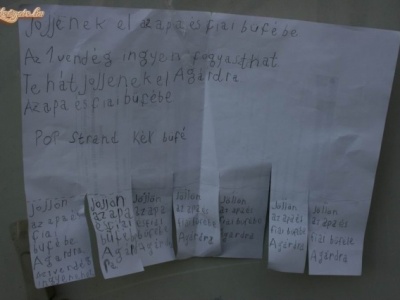 Jöjjenek el az apa és fiai büfébe
Az 1 vendég ingyen fogyaszthat
Tehát jöjjenek el Agárdra
Az apa és fiai büfébe
POP Strand két büfé
Jöjjön
az apa és
fiai
büfébe
Agárdra
Jöjjön
az apa
és fiai
büfébe
Agárdra
Jöjjön
az apa
és fiai
büfébe
Agárdra
Jöjjön
az apa és
fiai büfébe
Agárdra
Jöjjön
az apa és
fiai büfébe
Agárdra
Jöjjön
az apa és
fiai büfébe
Agárdra
Jöjjön
az apa és
fiai büfébe
Agárdra